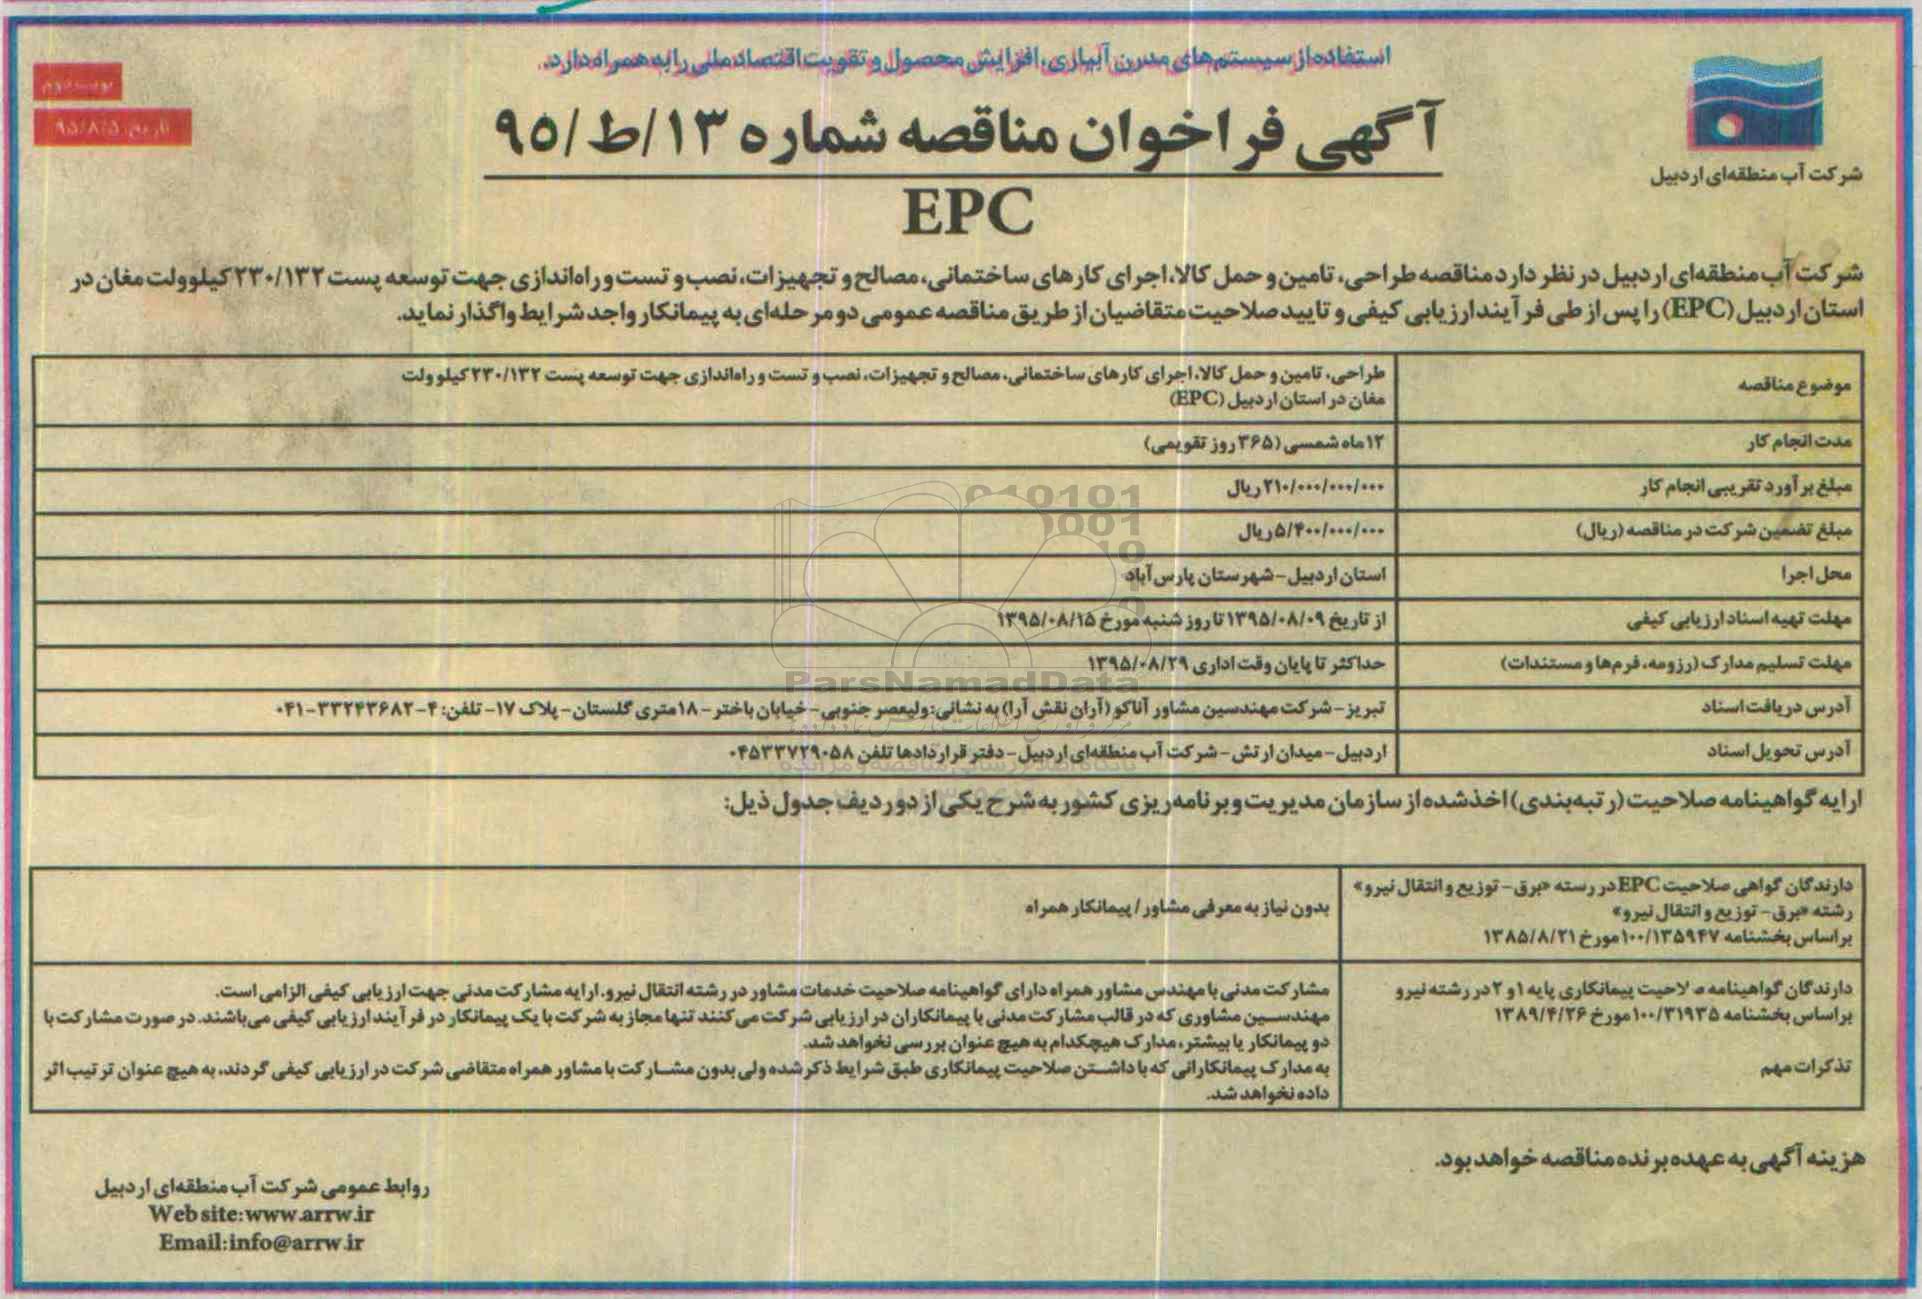 استفاده از سیستم‌های مدرن آبیاری، افزایش محصول و تقویت اقتصاد ملی را به همراه دارد.
تاریخ: ۹۵/۸/۵
شرکت آب منطقه‌ای اردبیل
آگهی فراخوان مناقصه شماره ۱۳/ط/۹۵
EPC
شرکت آب منطقه‌ای اردبیل در نظر دارد مناقصه طراحی، تامین و حمل کالا، اجرای کارهای ساختمانی، مصالح و تجهیزات، نصب و تست و راه‌اندازی جهت توسعه پست ۲۳۰/۱۳۲ کیلوولت مغان در
استان اردبیل (EPC) را پس از طی فرآیند ارزیابی کیفی و تایید صلاحیت متقاضیان از طریق مناقصه عمومی دو مرحله‌ای به پیمانکار واجد شرایط واگذار نماید.
موضوع مناقصه
طراحی، تامین و حمل کالا، اجرای کارهای ساختمانی، مصالح و تجهیزات، نصب و تست و راه‌اندازی جهت توسعه پست ۲۳۰/۱۳۲ کیلوولت
مغان در استان اردبیل (EPC)
مدت انجام کار
۱۲ ماه شمسی (۳۶۵ روز تقویمی)
مبلغ برآورد تقریبی انجام کار
۲۱۰/۰۰۰/۰۰۰/۰۰۰ ریال
مبلغ تضمین شرکت در مناقصه (ریال)
۵/۴۰۰/۰۰۰/۰۰۰ ریال
محل اجرا
استان اردبیل - شهرستان پارس‌آباد
مهلت تهیه اسناد ارزیابی کیفی
از تاریخ ۱۳۹۵/۰۸/۰۹ تا روز شنبه مورخ ۱۳۹۵/۰۸/۱۵
مهلت تسلیم مدارک (رزومه، فرم‌ها و مستندات)
حداکثر تا پایان وقت اداری ۱۳۹۵/۰۸/۲۹
آدرس دریافت اسناد
تبریز - شرکت مهندسین مشاور آناکو (آران نقش آرا) به نشانی: ولیعصر جنوبی - خیابان باختر - ۱۸ متری گلستان - پلاک ۱۷ - تلفن: ۴-۳۳۲۴۳۶۸۲-۰۴۱
آدرس تحویل اسناد
اردبیل - میدان ارتش - شرکت آب منطقه‌ای اردبیل - دفتر قراردادها تلفن ۰۴۵۳۳۷۲۹۰۵۸
ParsNamadData
ارایه گواهینامه صلاحیت (رتبه‌بندی) اخذ شده از سازمان مدیریت و برنامه‌ریزی کشور به شرح یکی از دو ردیف جدول ذیل:
دارندگان گواهی صلاحیت EPC در رسته «برق - توزیع و انتقال نیرو»
رشته «برق - توزیع و انتقال نیرو»
براساس بخشنامه ۱۰۰/۱۳۵۹۴۷ مورخ ۱۳۸۵/۸/۲۱
بدون نیاز به معرفی مشاور / پیمانکار همراه
دارندگان گواهینامه صلاحیت پیمانکاری پایه ۱ و ۲ در رشته نیرو
براساس بخشنامه ۱۰۰/۳۱۹۳۵ مورخ ۱۳۸۹/۴/۲۶
تذکرات مهم
مشارکت مدنی با مهندس مشاور همراه دارای گواهینامه صلاحیت خدمات مشاور در رشته انتقال نیرو. ارایه مشارکت مدنی جهت ارزیابی کیفی الزامی است.
مهندسین مشاوری که در قالب مشارکت مدنی با پیمانکاران در ارزیابی شرکت می‌کنند تنها مجاز به شرکت با یک پیمانکار در فرآیند ارزیابی کیفی می‌باشند. در صورت مشارکت با
دو پیمانکار یا بیشتر، مدارک هیچکدام به هیچ عنوان بررسی نخواهد شد.
به مدارک پیمانکارانی که با داشتن صلاحیت پیمانکاری طبق شرایط ذکر شده ولی بدون مشارکت با مشاور همراه متقاضی شرکت در ارزیابی کیفی گردند، به هیچ عنوان ترتیب اثر
داده نخواهد شد.
هزینه آگهی به عهده برنده مناقصه خواهد بود.
روابط عمومی شرکت آب منطقه‌ای اردبیل
Web site:www.arrw.ir
Email:info@arrw.ir